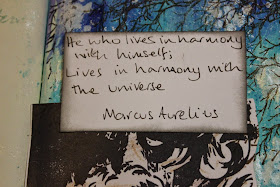 He who lives in harmony
with himself;
Lives in harmony with
the universe
Marcus Aurelius